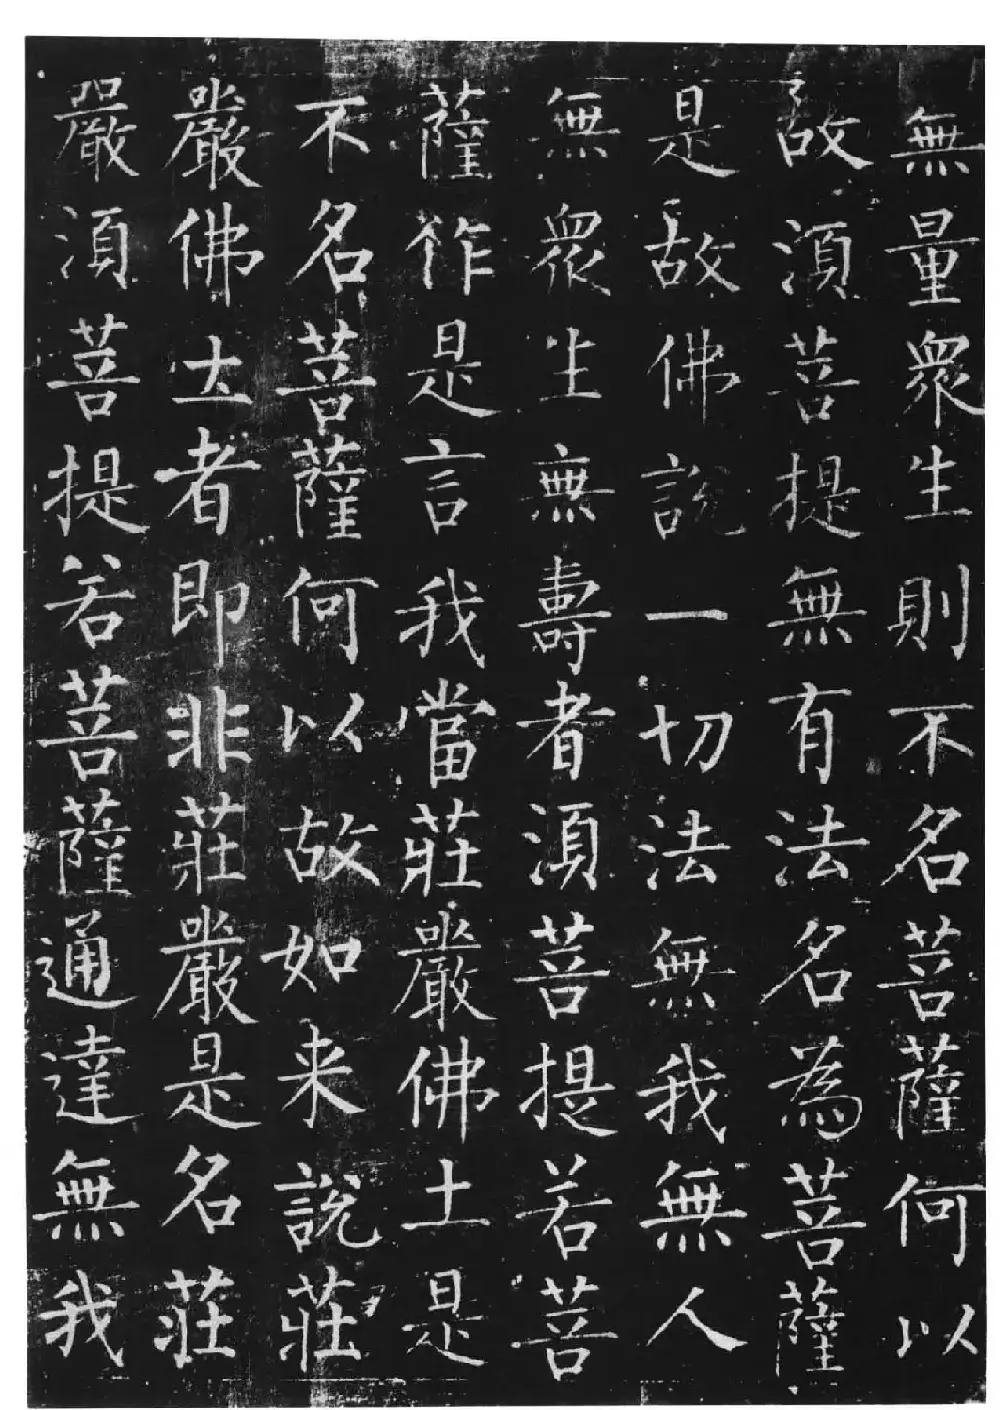 無量眾生則不名菩薩何以
故須菩提無有法名為菩薩
是故佛說一切法無我無人
無眾生無壽者須菩提若菩
薩作是言我當莊嚴佛土是
不名菩薩何以故如来說莊
嚴佛土者即非莊嚴是名莊
嚴須菩提若菩薩通達無我